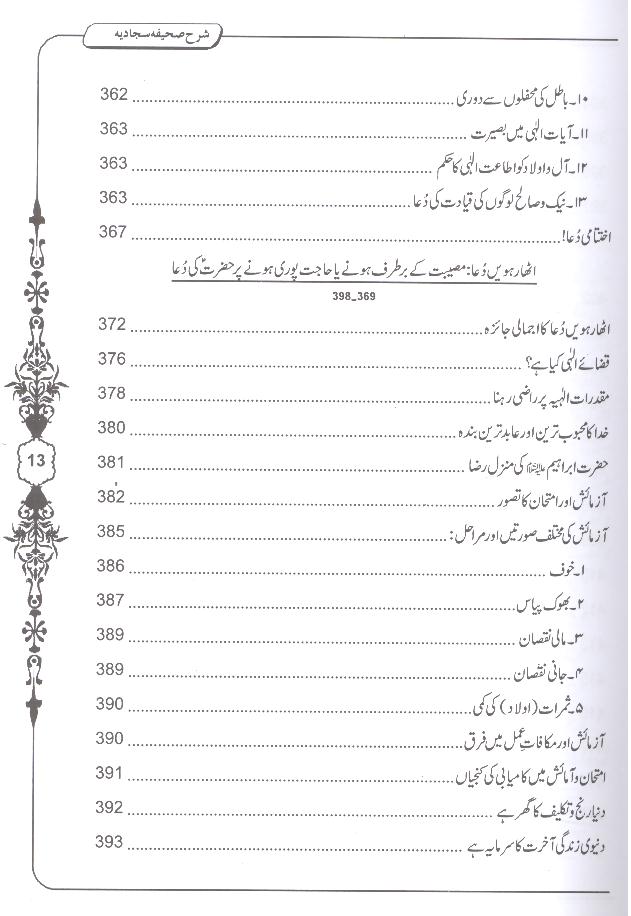 شرح صحیفہ سجادیہ
۱۰۔ باطل کی محفلوں سے دوری ........ 362
۱۱۔ آیات الٰہی میں بصیرت ........ 363
۱۲۔ آل و اولاد کو اطاعت الٰہی کا حکم ........ 363
۱۳۔ نیک و صالح لوگوں کی قیادت کی دُعا ........ 363
اختتامی دُعا! ........ 367
اٹھارہویں دُعا: مصیبت کے برطرف ہونے یا حاجت پوری ہونے پر حضرتؑ کی دُعا
398_369
اٹھارہویں دُعا کا اجمالی جائزہ ........ 372
قضائے الٰہی کیا ہے؟ ........ 376
مقدرات الٰہیہ پر راضی رہنا ........ 378
خدا کا محبوب ترین اور عابد ترین بندہ ........ 380
حضرت ابراہیم علیہ السلام کی منزل رضا ........ 381
آزمائش اور امتحان کا تصور ........ 382
آزمائش کی مختلف صورتیں اور مراحل: ........ 385
۱۔ خوف ........ 386
۲۔ بھوک پیاس ........ 387
۳۔ مالی نقصان ........ 389
۴۔ جانی نقصان ........ 389
۵۔ ثمرات (اولاد) کی کمی ........ 390
آزمائش اور مکافاتِ عمل میں فرق ........ 390
امتحان و آمائش میں کامیابی کی کنجیاں ........ 391
دنیا رنج و تکلیف کا گھر ہے ........ 392
دنیوی زندگی آخرت کا سرمایہ ہے ........ 393
13